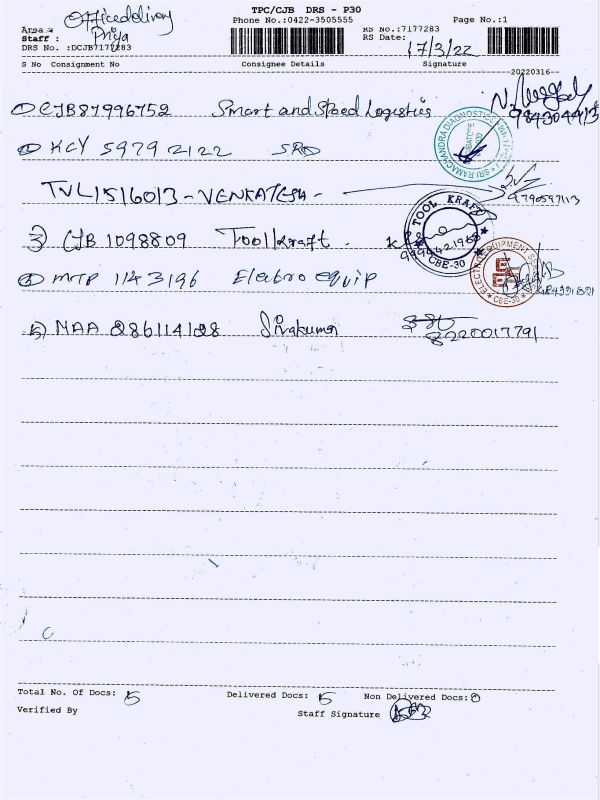 TPC/CJB DRS - P30
Officedelivery
Phone No.:0422-3505555
Page No.:1
Area :
RS No.:7177283
Staff : Priya
RS Date: 17/3/22
DRS No. :DCJB7177283
S No Consignment No Consignee Details Signature
20220316
① CJB87996752 Smart and Speed Logistics
② KCY 59792122 SRD
TVL1516013 - VENKATESH -
3) CJB 1098809 Toolkraft .
TOOL KRAFT
CBE-30
④ MTP 1143196 Electro equip
CBE-30
5) MAA 286114128 Sivakumar
8220017791
Total No. Of Docs: 5 Delivered Docs: 5 Non Delivered Docs: 0
Verified By Staff Signature